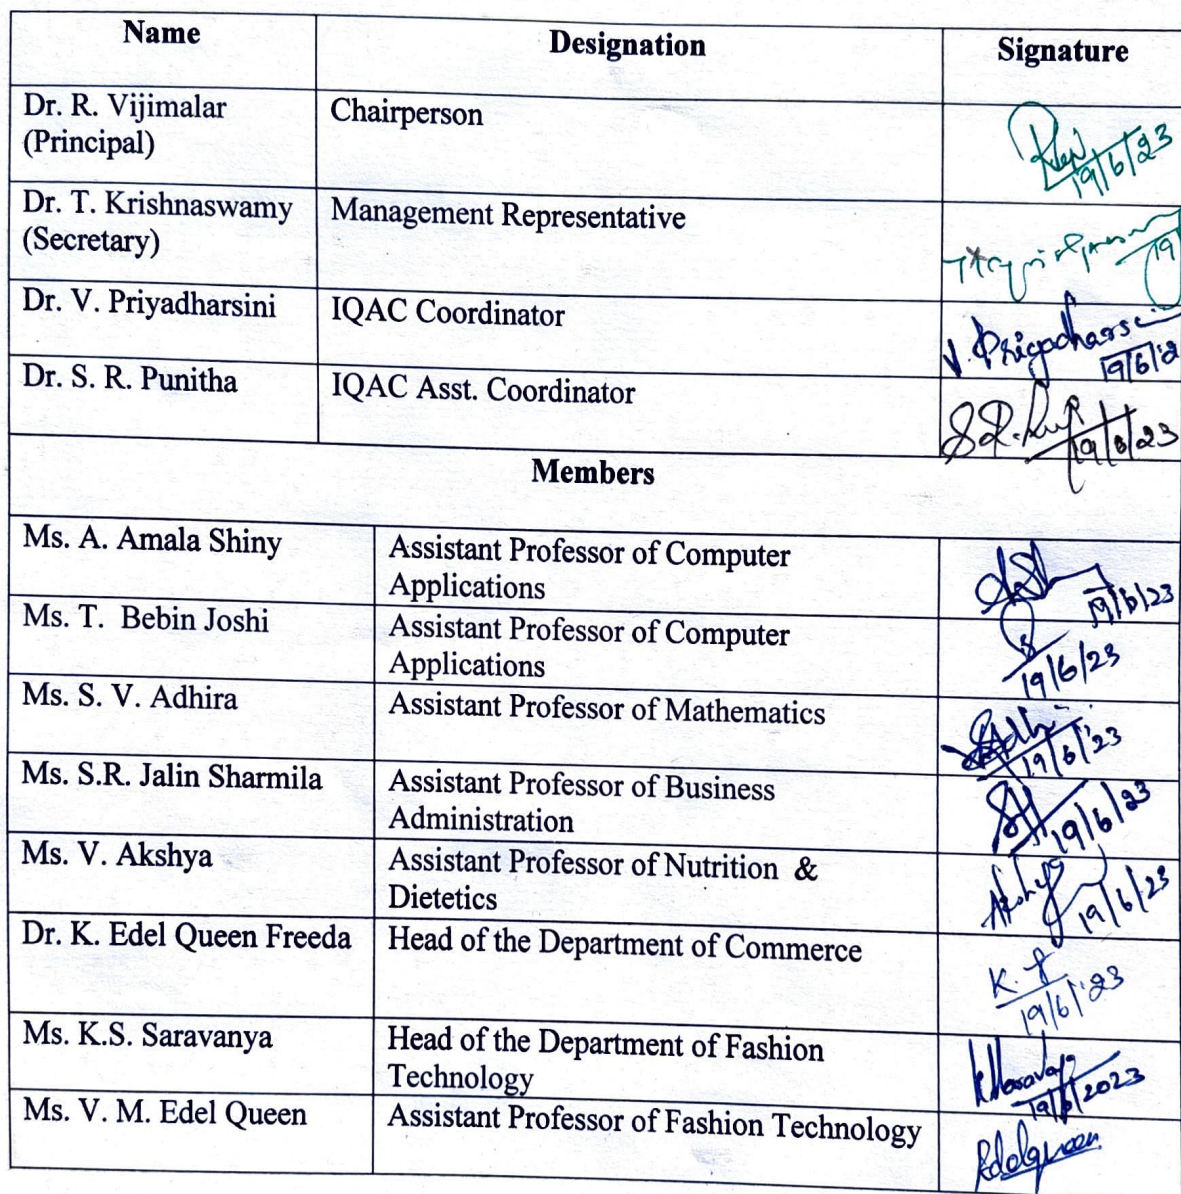 Name Designation Signature
Dr. R. Vijimalar Chairperson
(Principal)
19/6/23
Dr. T. Krishnaswamy Management Representative
(Secretary)
19
Dr. V. Priyadharsini IQAC Coordinator
V. Priyadharsini
19/6/2
Dr. S. R. Punitha IQAC Asst. Coordinator
S.R.
19/6/23
Members
Ms. A. Amala Shiny Assistant Professor of Computer
Applications
19/6/23
Ms. T. Bebin Joshi Assistant Professor of Computer
Applications
19/6/23
Ms. S. V. Adhira Assistant Professor of Mathematics
19/6/23
Ms. S.R. Jalin Sharmila Assistant Professor of Business
Administration
19/6/23
Ms. V. Akshya Assistant Professor of Nutrition &
Dietetics
19/6/23
Dr. K. Edel Queen Freeda Head of the Department of Commerce
K. f
19/6/'23
Ms. K.S. Saravanya Head of the Department of Fashion
Technology
19/6/2023
Ms. V. M. Edel Queen Assistant Professor of Fashion Technology
Edelqueen